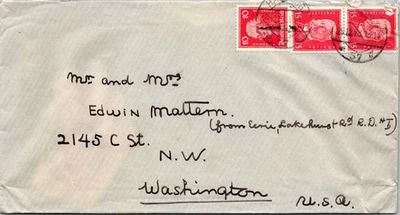 Mr and Mrs
Edwin Mattern.
(from Eerie, Lakehurst Rd R.D. #
2145 C St.
N.W.
Washington
U.S.A.